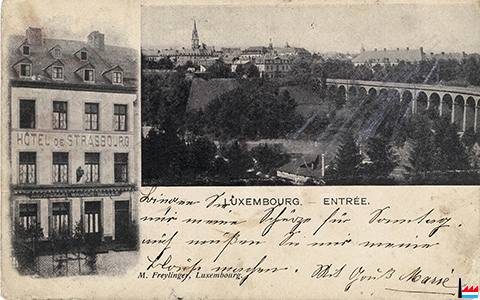 HÔTEL DE STRASBOURG
LUXEMBOURG. – ENTRÉE.
Bringen Sie
mir meine für Sonntag.
auch müßen Sie mir meine
machen. Mit Gruß Marie
M. Freylinger, Luxembourg.